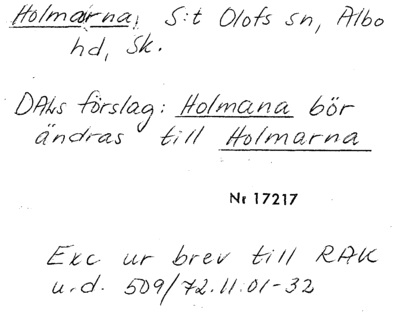 Holmarna, S:t Olofs sn, Albo
hd, Sk.
DALs förslag: Holmana bör
ändras till Holmarna
Nr 17217
Exc ur brev till RAK
u.d. 509/72.11.01-32